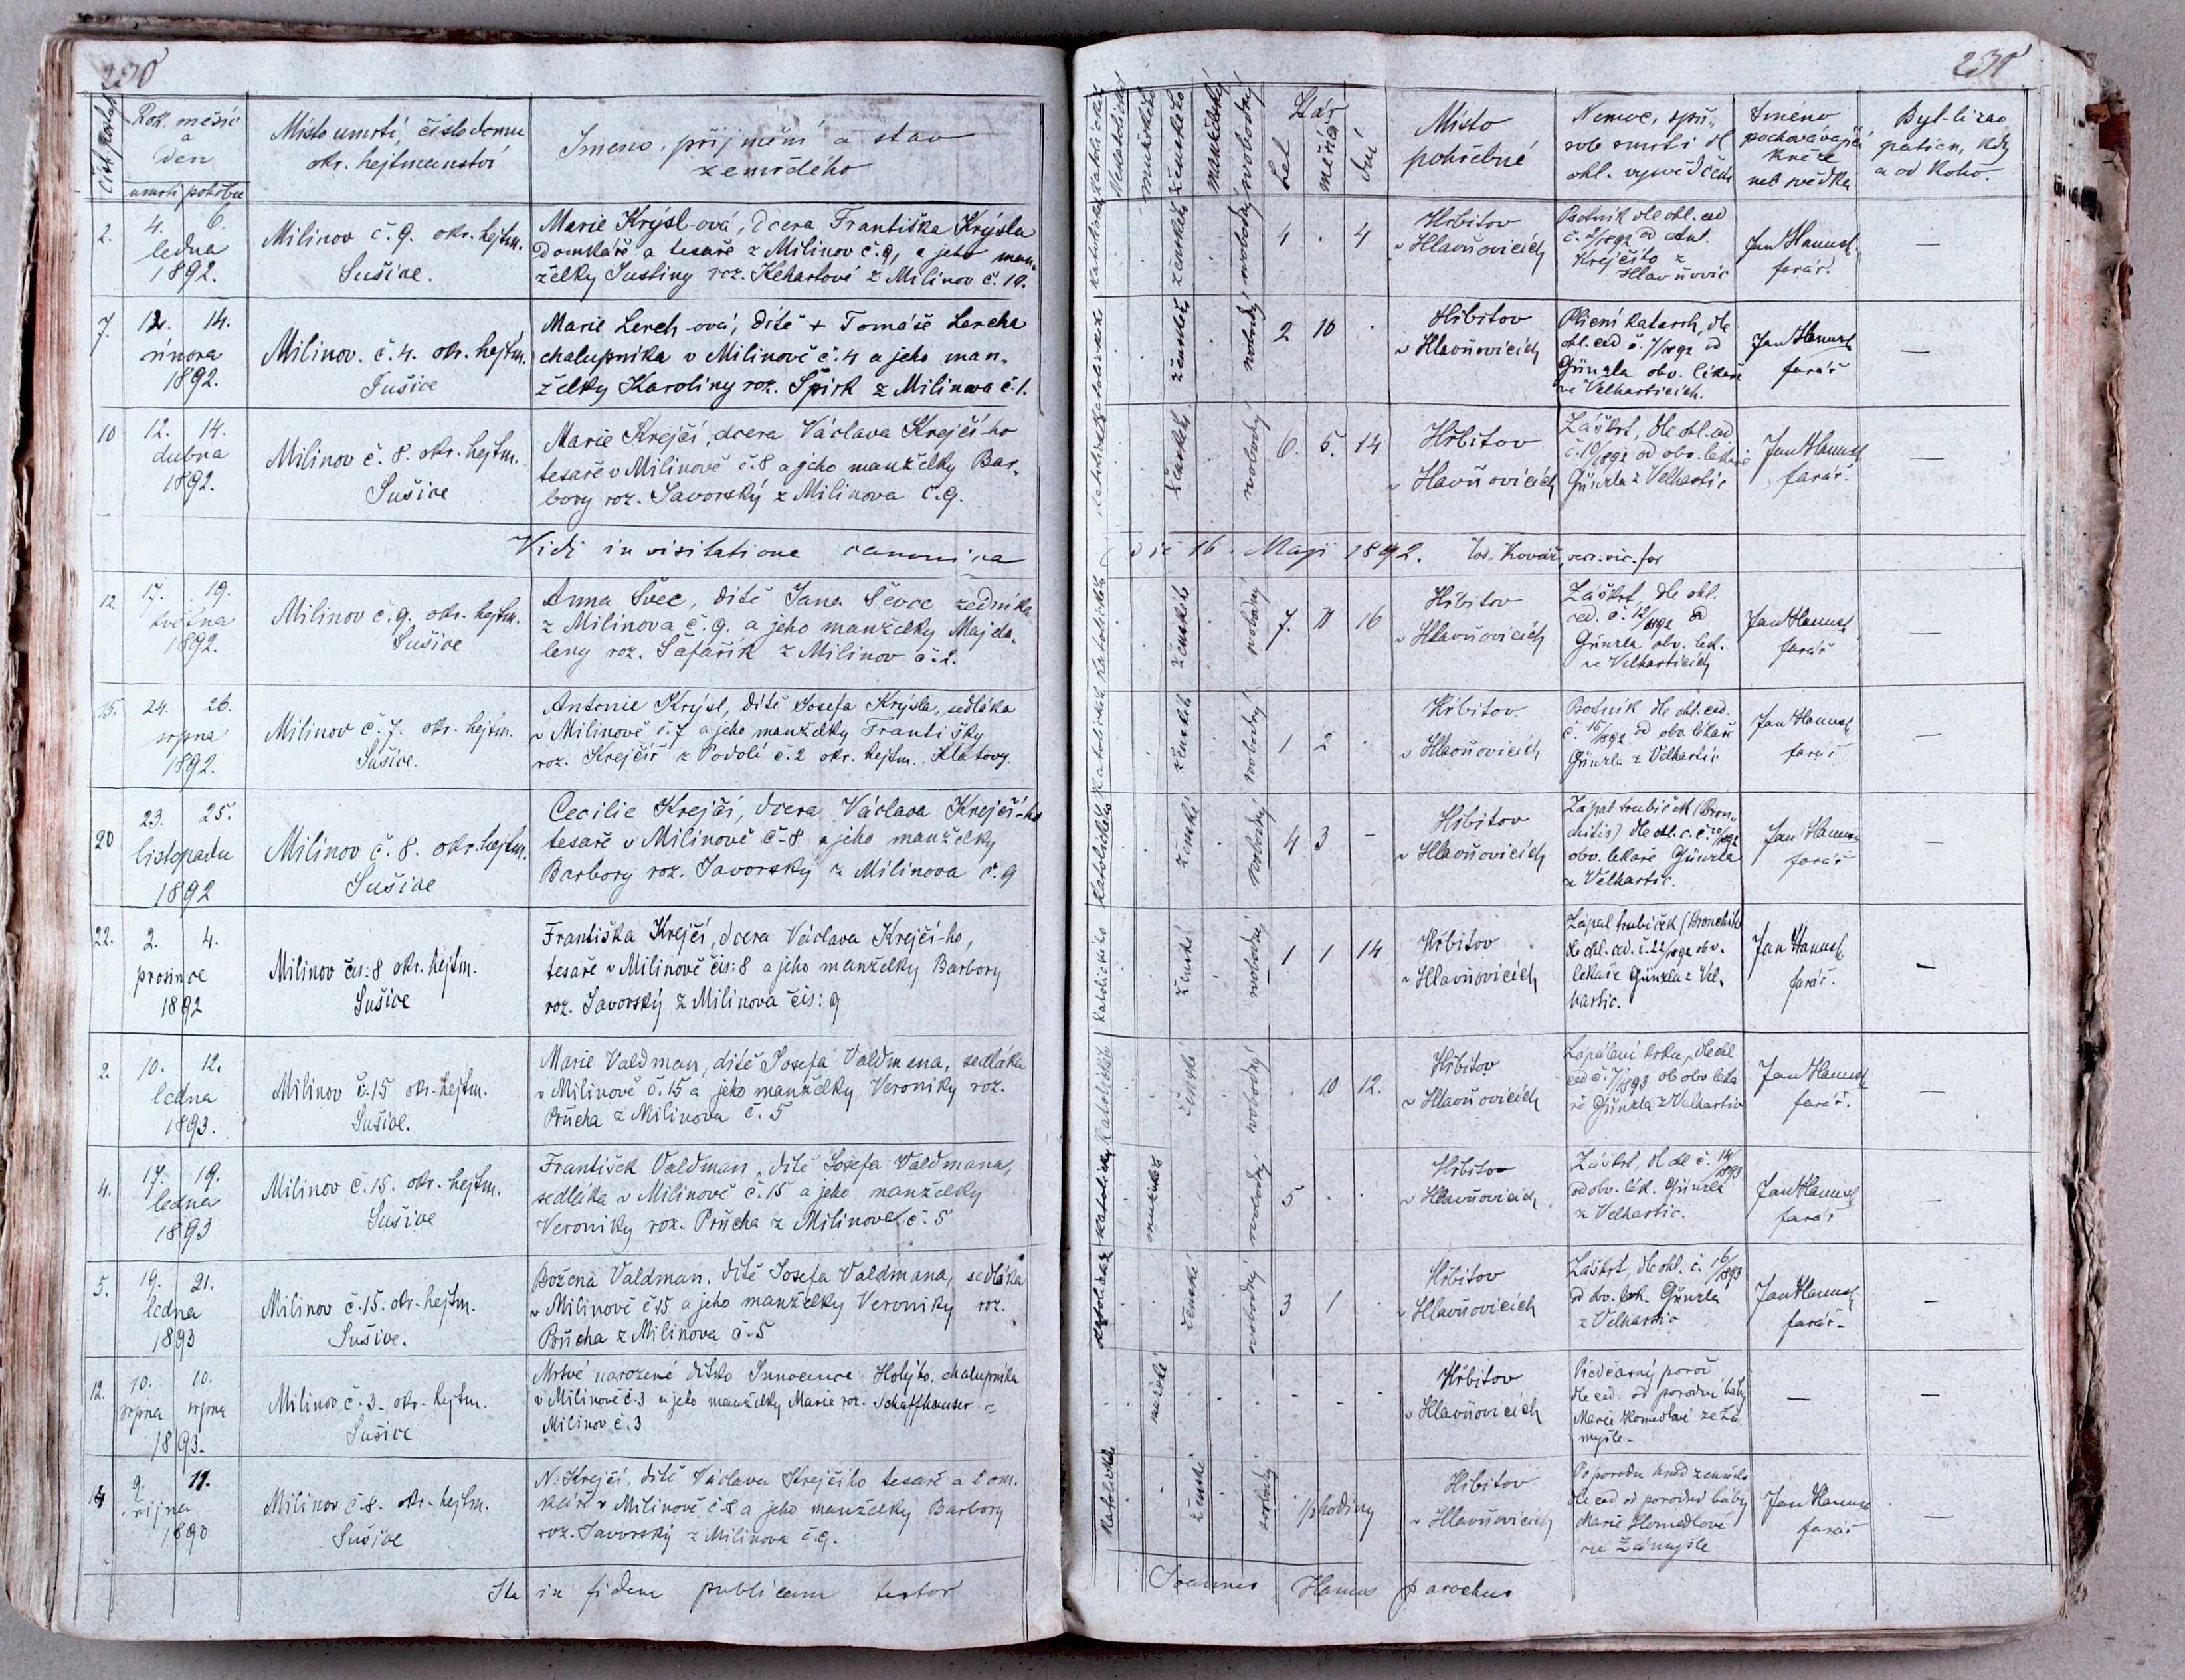 230
Čís. postup.
Rok, měsíc
a
Den
umrtí pohřbu
Místo umrtí, číslo domu
okr. hejtmanství
Jmeno, přijmění a stav
zemřelého
2.
4. 6.
ledna
1892.
Milinov č. 9. okr. hejtm.
Sušice.
Marie Krýsl-ová, dcera Františka Krýsla
Domkáře a tesaře z Milinov č. 9, a jeho man-
želky Justiny roz. Kehartové z Milinov č. 19.
7.
12. 14.
února
1892.
Milinov. č. 4. okr. hejtm.
Sušice
Marie Lerch-ová, dítě + Tomáše Lercha
chalupníka v Milinově č. 4 a jeho man-
želky Karoliny roz. Špirk z Milinova č. 1.
10
12. 14.
dubna
1892.
Milinov č. 8. okr. hejtm.
Sušice
Marie Krejčí, dcera Václava Krejčí-ho
tesaře v Milinově č. 8 a jeho manželky Bar-
bory roz. Javorský z Milinova č. 9.
Vidi in visitatione canonica
12
17. 19.
května
1892.
Milinov č. 9. okr. hejtm.
Sušice
Anna Švec, dítě Jana Ševce zedníka
z Milinova č. 9. a jeho manželky Majda-
leny roz. Šafařík z Milinov č. 2.
15.
24. 26.
srpna
1892.
Milinov č. 7. okr. hejtm.
Sušice.
Antonie Krýsl, dítě Josefa Krýsla, sedláka
v Milinově č. 7 a jeho manželky Františky
roz. Krejčíř z Podolí č. 2 okr. hejtm. Klatovy.
20
23. 25.
listopadu
1892
Milinov č. 8. okr. hejtm.
Sušice
Cecilie Krejčí, dcera Václava Krejčí-ho
tesaře v Milinově č. 8 a jeho manželky
Barbory roz. Javorský z Milinova č. 9
22.
2. 4.
prosince
1892
Milinov čis: 8 okr. hejtm.
Sušice
Františka Krejčí, dcera Václava Krejčí-ho,
tesaře v Milinově čis: 8 a jeho manželky Barbory
roz. Javorský z Milinova čis: 9
2.
10. 12.
ledna
1893.
Milinov č. 15 okr. hejtm.
Sušice.
Marie Valdman, dítě Josefa Valdmena, sedláka
v Milinově č. 15 a jeho manželky Veroniky roz.
Průcha z Milinova č. 5
4.
17. 19.
ledna
1893
Milinov č. 15. okr. hejtm.
Sušice
František Valdman, dítě Josefa Valdmana,
sedláka v Milinově č. 15 a jeho manželky
Veroniky roz. Průcha z Milinova č. 5
5.
19. 21.
ledna
1893
Milinov č. 15. okr. hejtm.
Sušice.
Božena Valdman, dítě Josefa Valdmana, sedláka
v Milinově č. 15 a jeho manželky Veroniky roz.
Průcha z Milinova č. 5
12.
10. 10.
srpna srpna
1893.
Milinov č. 3. okr. hejtm.
Sušice
Mrtvě narozené dítko Innocence Holýho, chalupníka
v Milinově č. 3 a jeho manželky Marie roz. Schaffhauser z
Milinov č. 3
14
9. 11.
října
1893
Milinov č. 8. okr. hejtm.
Sušice
N. Krejčí, dítě Václava Krejčího tesaře a dom.
káře v Milinově č. 8 a jeho manželky Barbory
roz. Javorský z Milinova č. 9.
Ita in fidem publicam testor
231
Katolických
Nekatolických
mužského
ženského
manželský
svobodný
Stář
Let
měsíc
dní
Místo
pohřebné
Nemoc, spů-
sob smrti dl
ohl. vysvědčení
Jméno
pochovávající
kněze
neb svědka
Byl-li zao
patřen, kdy
a od koho.
ženského svobodný 4 . 4
Hřbitov
v Hlavňovicích
Psotník dle ohl. ced
č. 2/1892 od Ant.
Krejčího z
Hlavňovic
Jan Hanusch
farář.
—
ženské svobodný 2 10 .
Hřbitov
v Hlavňovicích
Plicní katarrh, dle
ohl. ced č. 7/1892 od
Günzla obv. lékaře
ve Velharticích.
Jan Hanusch
farář
—
ženský svobodný 6. 5. 14
Hřbitov
v Havňovicích
Záškrt, dle ohl. ced
č. 10/1892 od obv. lékaře
Günzla z Velhartic
Jan Hanusch
farář.
—
die 16. Maji 1892. Jos. Kovář, secr. vic. for
ženského svobodný 7. 11 16
Hřbitov
v Hlavňovicích
Záškrt, dle ohl.
ced. č. 12/1892 od
Günzla obv. lek.
ve Velharticích
Jan Hanusch
farář
—
ženské svobodný 1. 2 .
Hřbitov
v Hlavňovicích
Psotník dle ohl. ced.
č. 15/1892 od obv. lékaře
Günzla z Velhartic
Jan Hanusch
farář
—
ženské svobodný 4 3 –
Hřbitov
v Hlavňovicích
Zápal trubiček (Bron-
chitis) dle ohl. c. č. 20/1892
obv. lekaře Günzla
z Velhartic.
Jan Hanusch
farář
—
ženské svobodný 1 1 14
Hřbitov
v Hlavňovicích
Zápal trubiček (Bronchitis
dle ohl. ced. č. 22/1892 obv.
lekaře Günzla z Vel-
hartic.
Jan Hanusch
farář.
–
ženské svobodný . 10 12.
Hřbitov
v Hlavňovicích
Zapálení krku, dle ohl
ced č. 7/1893 od obv leka
ře Günzla z Velhartic
Jan Hanusch
farář.
—
mužské svobodný 5 . .
Hřbitov
v Hlavňovicích
Záškrt, dl ohl č. 14/1893
od obv. lék. Günzla
z Velhartic.
Jan Hanusch
farář
–
ženské svobodný 3 1 .
Hřbitov
v Hlavňovicích
Záškrt, dle ohl. č. 16/1893
od obv. lek. Günzla
z Velhartic
Jan Hanusch
farář.
–
mužské . . - - -
Hřbitov
v Hlavňovicích
Předčasný porod
dle ced. od porodní báby
Marie Homedlové ze Zá-
myšle.
—
—
Katolické ženské svobodný 1/2 hodiny
Hřbitov
v Hlavňovicích
Po porodu hned zemřelo
dle ced od porodní báby
Marie Homedlové
ze Zámyšle
Jan Hanusch
farář
—
Joannes Hanus parochus